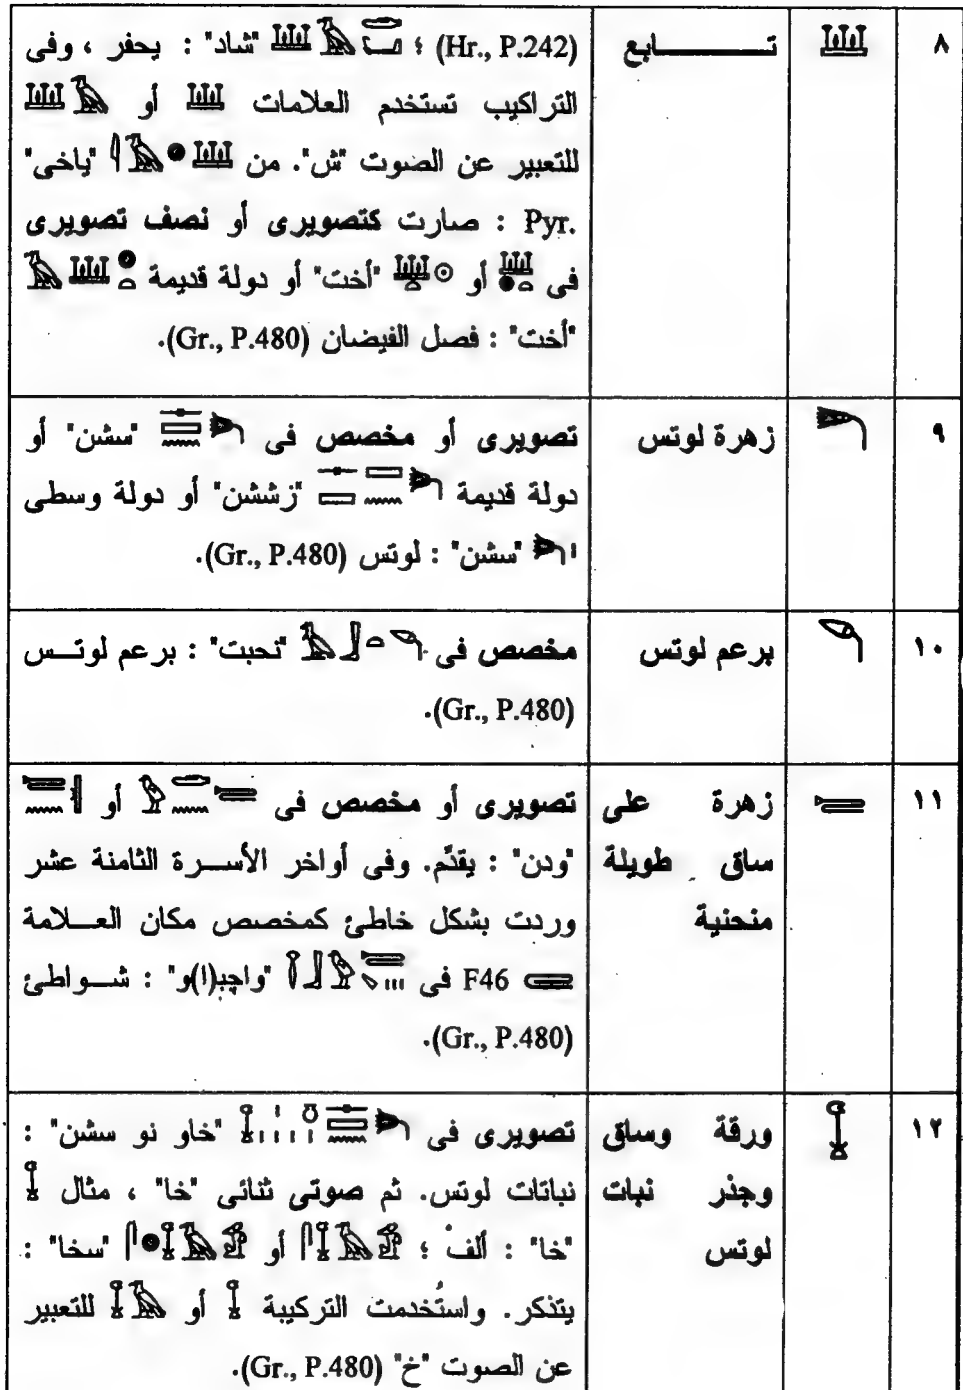 ٨ 𓆷 تابع (Hr., P.242) ؛ "شاد" : يحفر ، وفى
التراكيب تستخدم العلامات 𓆷 أو 𓆷𓄿
للتعبير عن الصوت "ش". من "ياخى"
Pyr. : صارت كتصويرى أو نصف تصويرى
فى أو "أخت" أو دولة قديمة
"أخت" : فصل الفيضان (Gr., P.480).
٩ 𓆸 زهرة لوتس تصويرى أو مخصص فى "سشن" أو
دولة قديمة "زششن" أو دولة وسطى
"سشن" : لوتس (Gr., P.480).
١٠ 𓆹 برعم لوتس مخصص فى "نحبت" : برعم لوتس
(Gr., P.480).
١١ 𓆻 زهرة على تصويرى أو مخصص فى أو
ساق طويلة "ودن" : يقدّم. وفى أواخر الأسرة الثامنة عشر
منحنية وردت بشكل خاطئ كمخصص مكان العلامة
F46 فى "واجبـ(ا)و" : شواطئ
(Gr., P.480).
١٢ 𓆼 ورقة وساق تصويرى فى "خاو نو سشن" :
وجذر نبات نباتات لوتس. ثم صوتى ثنائى "خا" ، مثال 𓆼
لوتس "خا" : ألف ؛ أو "سخا" :
يتذكر. واستُخدمت التركيبة 𓆼 أو 𓆼𓄿 للتعبير
عن الصوت "خ" (Gr., P.480).